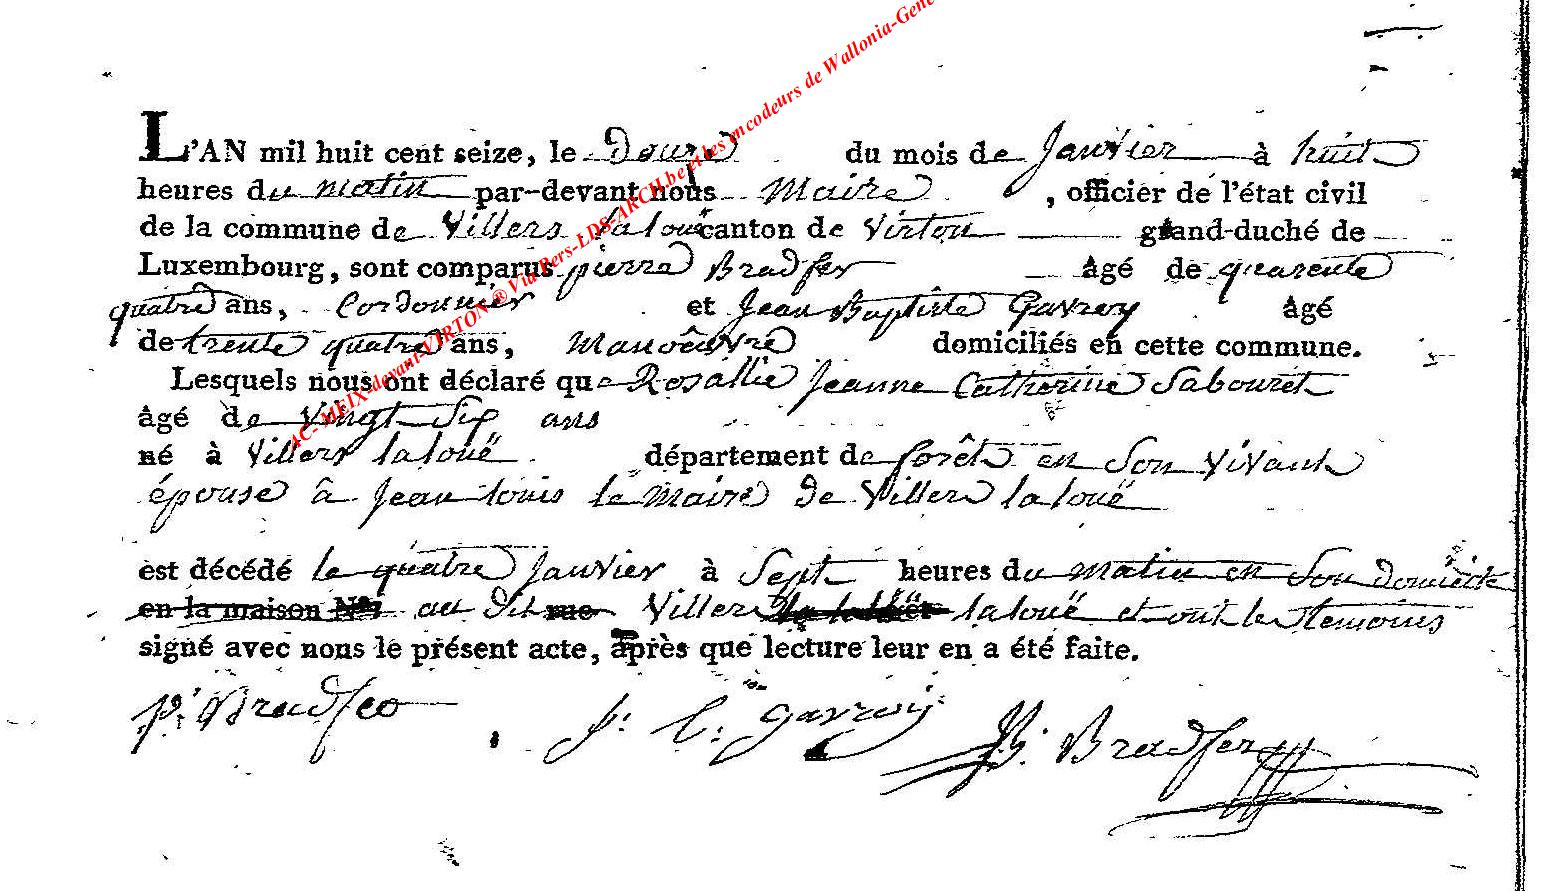 AC- MEIX-devant-VIRTON ® Via Rers-LDS-ARCH.be et les encodeurs de Wallonia-Gene
L'AN mil huit cent seize, le Douze du mois de Janvier à huit
heures du matin par-devant nous Maire , officier de l'état civil
de la commune de Villers laloue canton de Virton grand-duché de
Luxembourg, sont comparus pierre Bradfer âgé de quarente
quatre ans, Cordonnier et Jean Baptiste Gavroy âgé
de trente quatre ans, Manoêuvre domiciliés en cette commune.
Lesquels nous ont déclaré que Rosallie Jeanne Catherine Sabouret
âgé de Vingt Six ans
né à Villers lalouë département de forêt en Son Vivant
épouse â Jean louis le Maire de Villers lalouë
est décédé le quatre Janvier à Sept heures du matin en Son domicile
en la maison No. au dit rue Villers lalouë et ont les temoins
signé avec nons le présent acte, après que lecture leur en a été faite.
p. Bradfer J. gavroy Bradfer